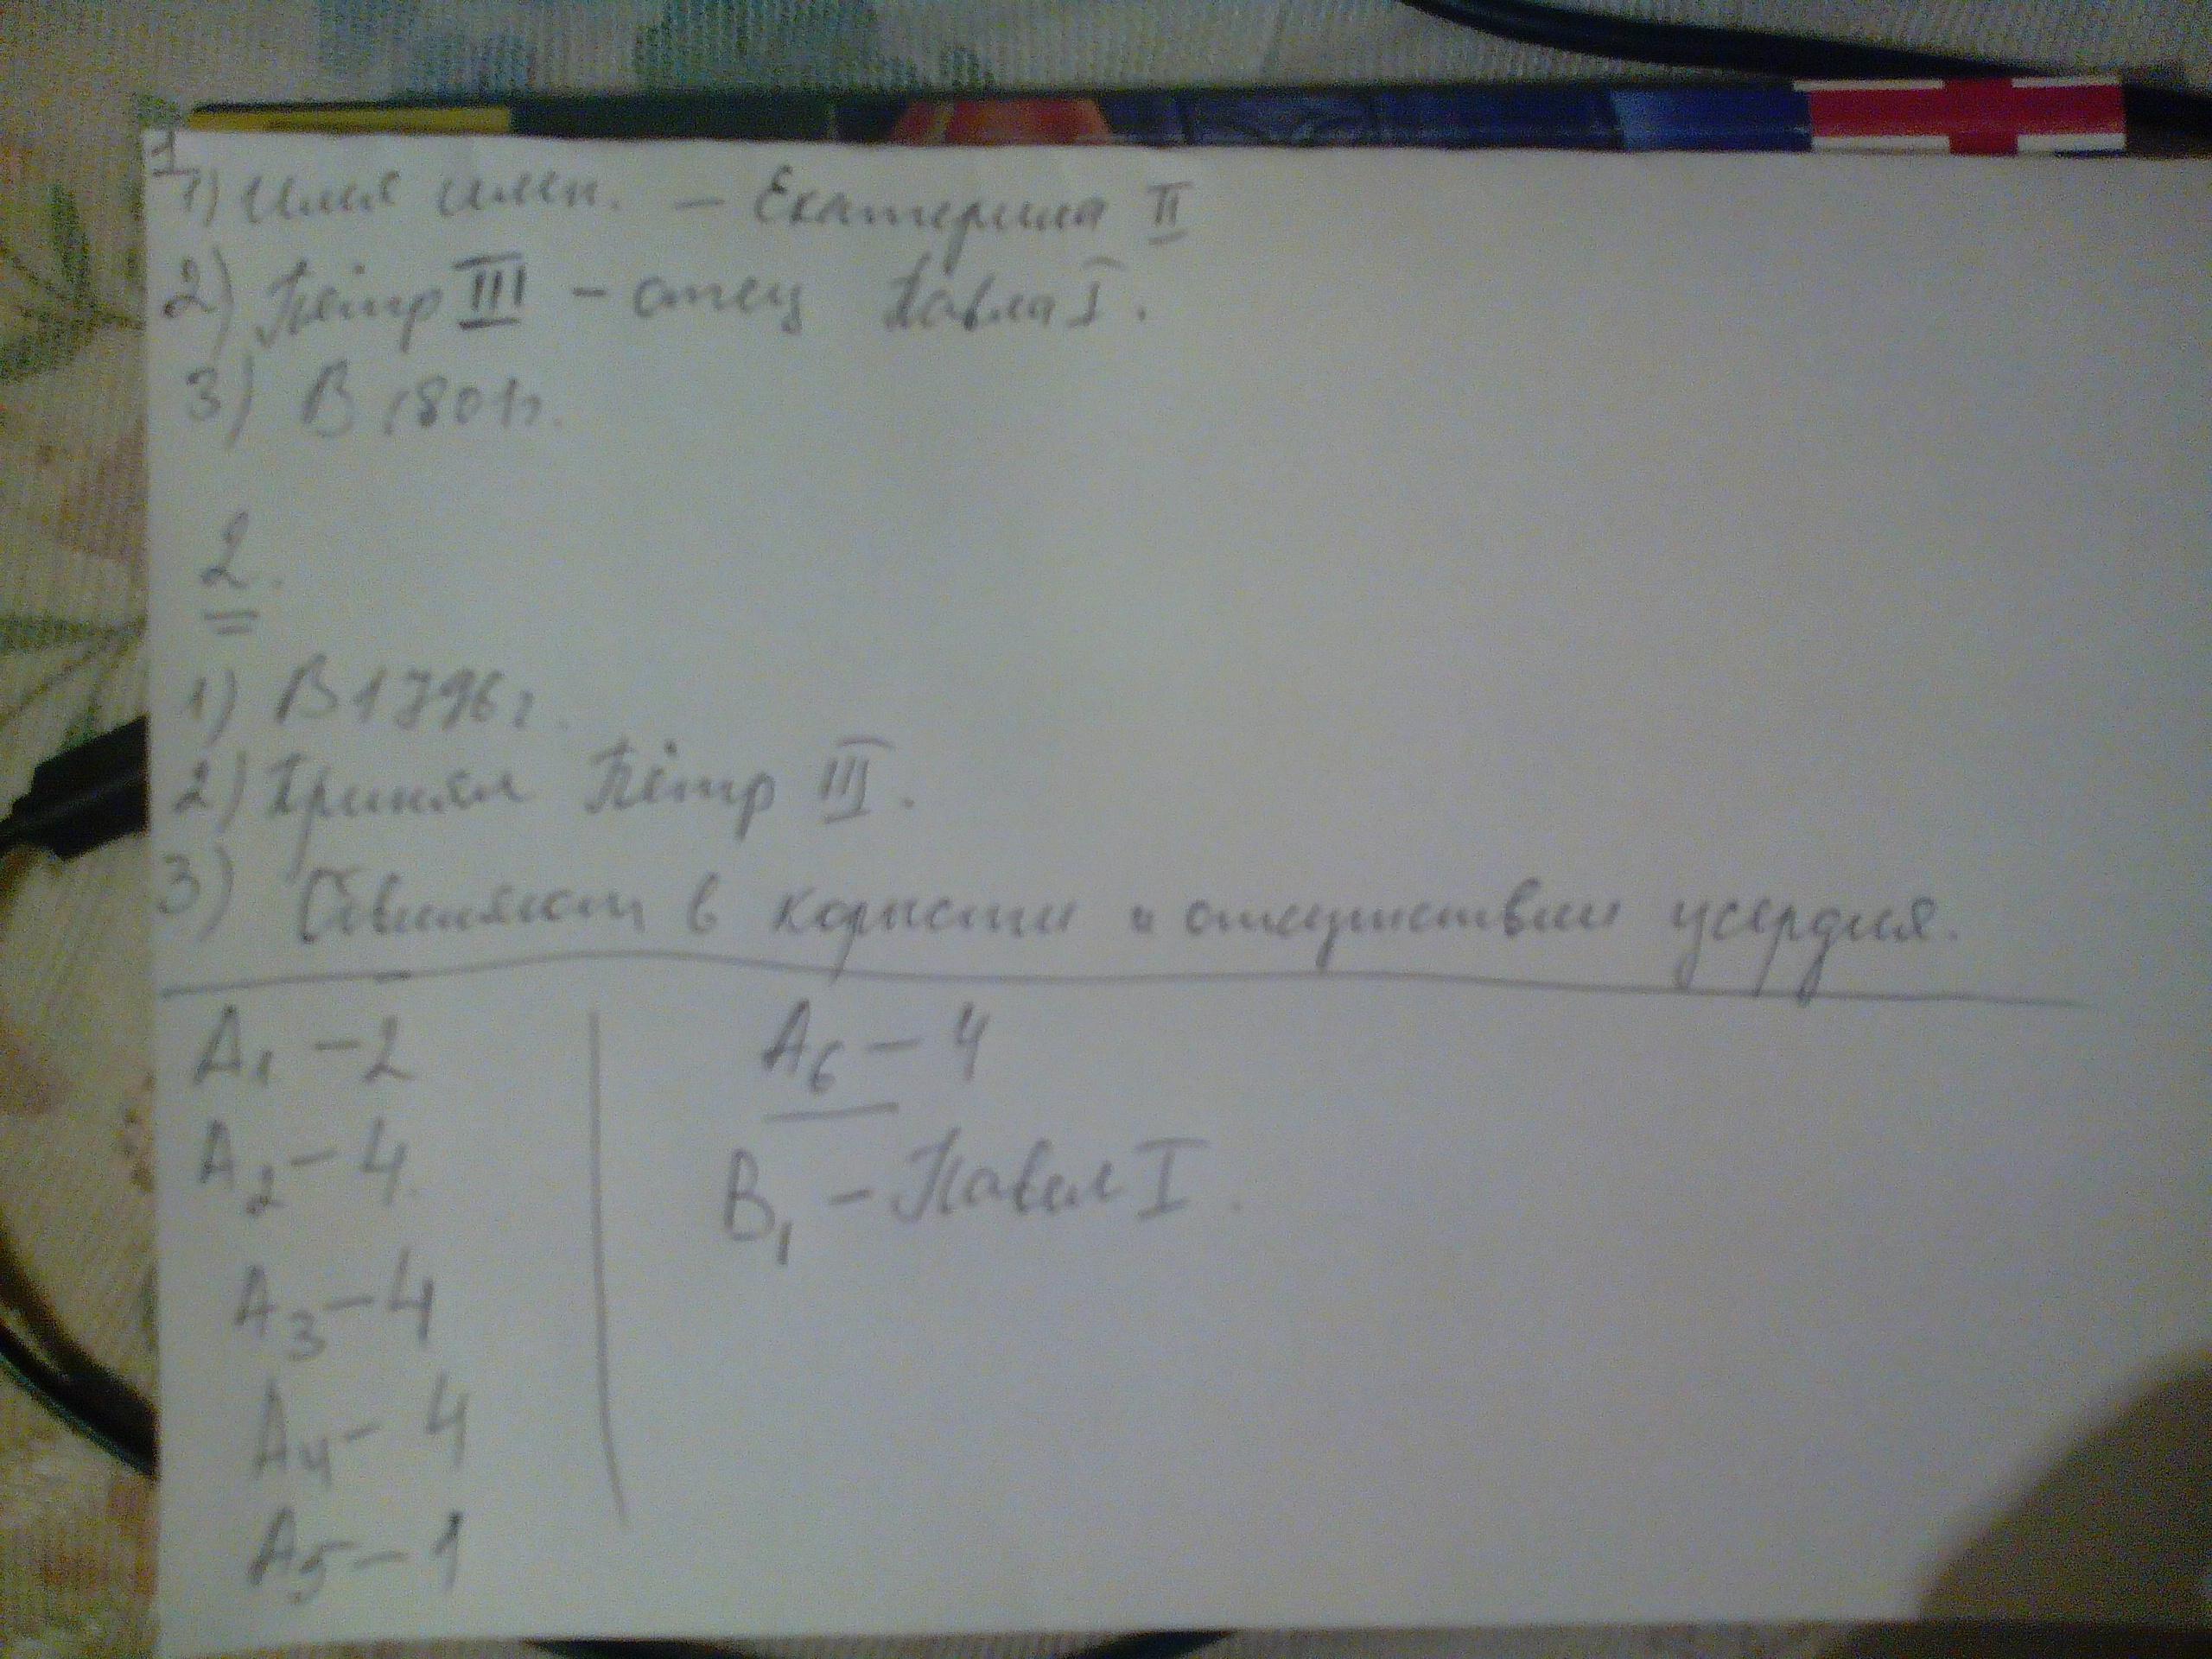 1
1) Имя имп.  – Екатерина II
2) Пётр III – отец Павла I.
3) В 1801г.
2.
1) В 1796г.
2) Принял Пётр III.
3) Обвиняют в корысти и отсутствии усердия.
А1 – 2
А2 – 4.
А3 – 4
А4 – 4
А5 – 1
А6 – 4
В1 – Павел I.